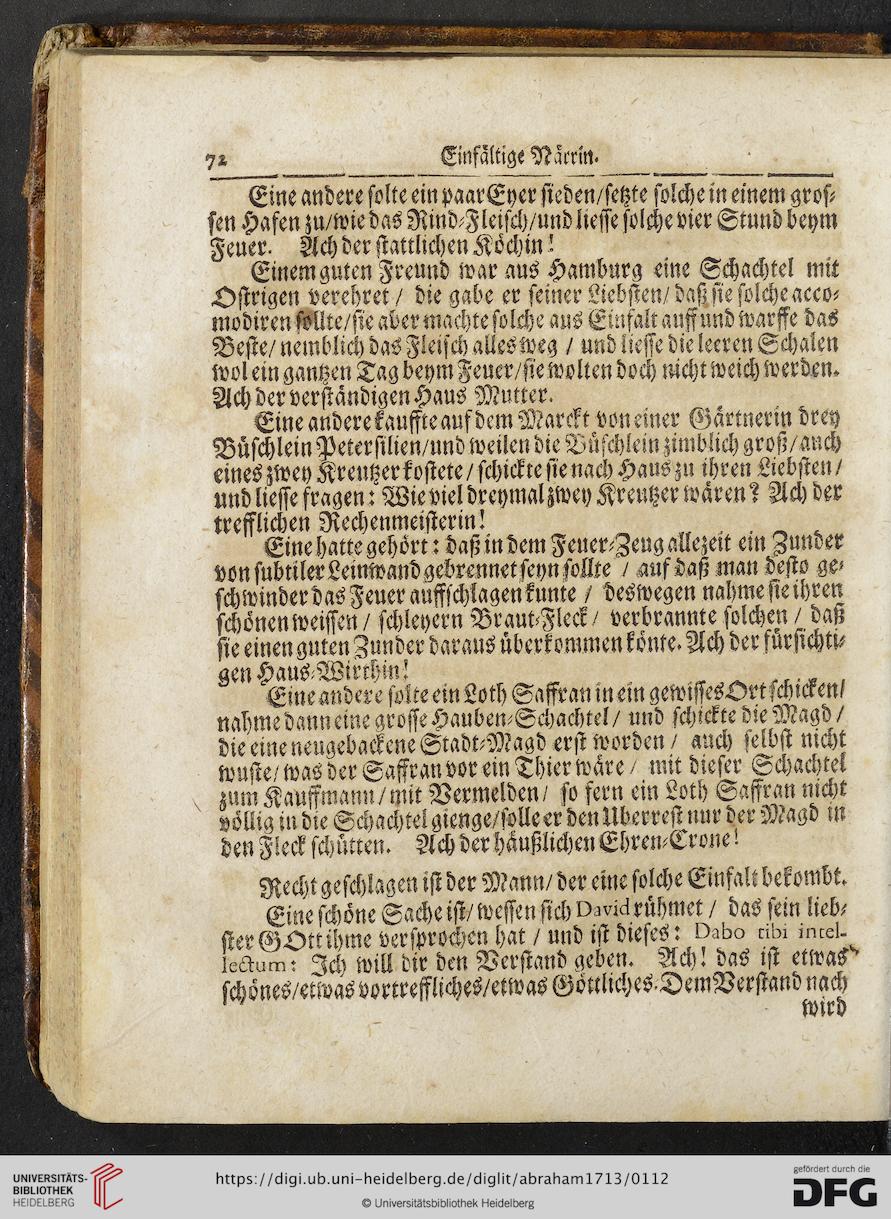 72 Einfältige Närrin.
Eine andere solte ein paar Eyer sieden/setzte solche in einem gros-
sen Hafen zu/wie das Rind-Fleisch/und liesse solche vier Stund beym
Feuer. Ach der stattlichen Köchin!
Einem guten Freund war aus Hamburg eine Schachtel mit
Ostrigen verehret / die gabe er seiner Liebsten/ daß sie solche acco-
modiren sollte/sie aber machte solche aus Einfalt auff und warffe das
Beste/ nemblich das Fleisch alles weg / und liesse die leeren Schalen
wol ein gantzen Tag beym Feuer/sie wolten doch nicht weich werden.
Ach der verständigen Haus Mutter.
Eine andere kauffte auf dem Marckt von einer Gärtnerin drey
Büschlein Petersilien/und weilen die Büschlein zimblich groß/auch
eines zwey Kreutzer kostete/ schickte sie nach Haus zu ihren Liebsten/
und liesse fragen: Wie viel dreymal zwey Kreutzer wären? Ach der
trefflichen Rechenmeisterin!
Eine hatte gehört: daß in dem Feuer-Zeug allezeit ein Zunder
von subtiler Leinwand gebrennet seyn sollte / auf daß man desto ge-
schwinder das Feuer auffschlagen kunte / deswegen nahme sie ihren
schönen weissen / schleyern Braut-Fleck / verbrannte solchen / daß
sie einen guten Zunder daraus überkommen könte. Ach der fürsichti-
gen Haus-Wirthin!
Eine andere solte ein Loth Saffran in ein gewisses Ort schicken/
nahme dann eine grosse Hauben-Schachtel / und schickte die Magd /
die eine neugebackene Stadt-Magd erst worden / auch selbst nicht
wuste/ was der Saffran vor ein Thier wäre / mit dieser Schachtel
zum Kauffmann/mit Vermelden/ so fern ein Loth Saffran nicht
völlig in die Schachtel gienge/solle er den Uberrest nur der Magd in
den Fleck schütten. Ach der häußlichen Ehren-Crone!
Recht geschlagen ist der Mann/ der eine solche Einfalt bekombt.
Eine schöne Sache ist/ wessen sich David rühmet / das sein lieb-
ster GOtt ihme versprochen hat / und ist dieses: Dabo tibi intel-
lectum: Ich will dir den Verstand geben. Ach! das ist etwas
schönes/etwas vortreffliches/etwas Göttliches. Dem Verstand nach
wird
UNIVERSITÄTS-
BIBLIOTHEK
HEIDELBERG
https://digi.ub.uni-heidelberg.de/diglit/abraham1713/0112
© Universitätsbibliothek Heidelberg
gefördert durch die
DFG